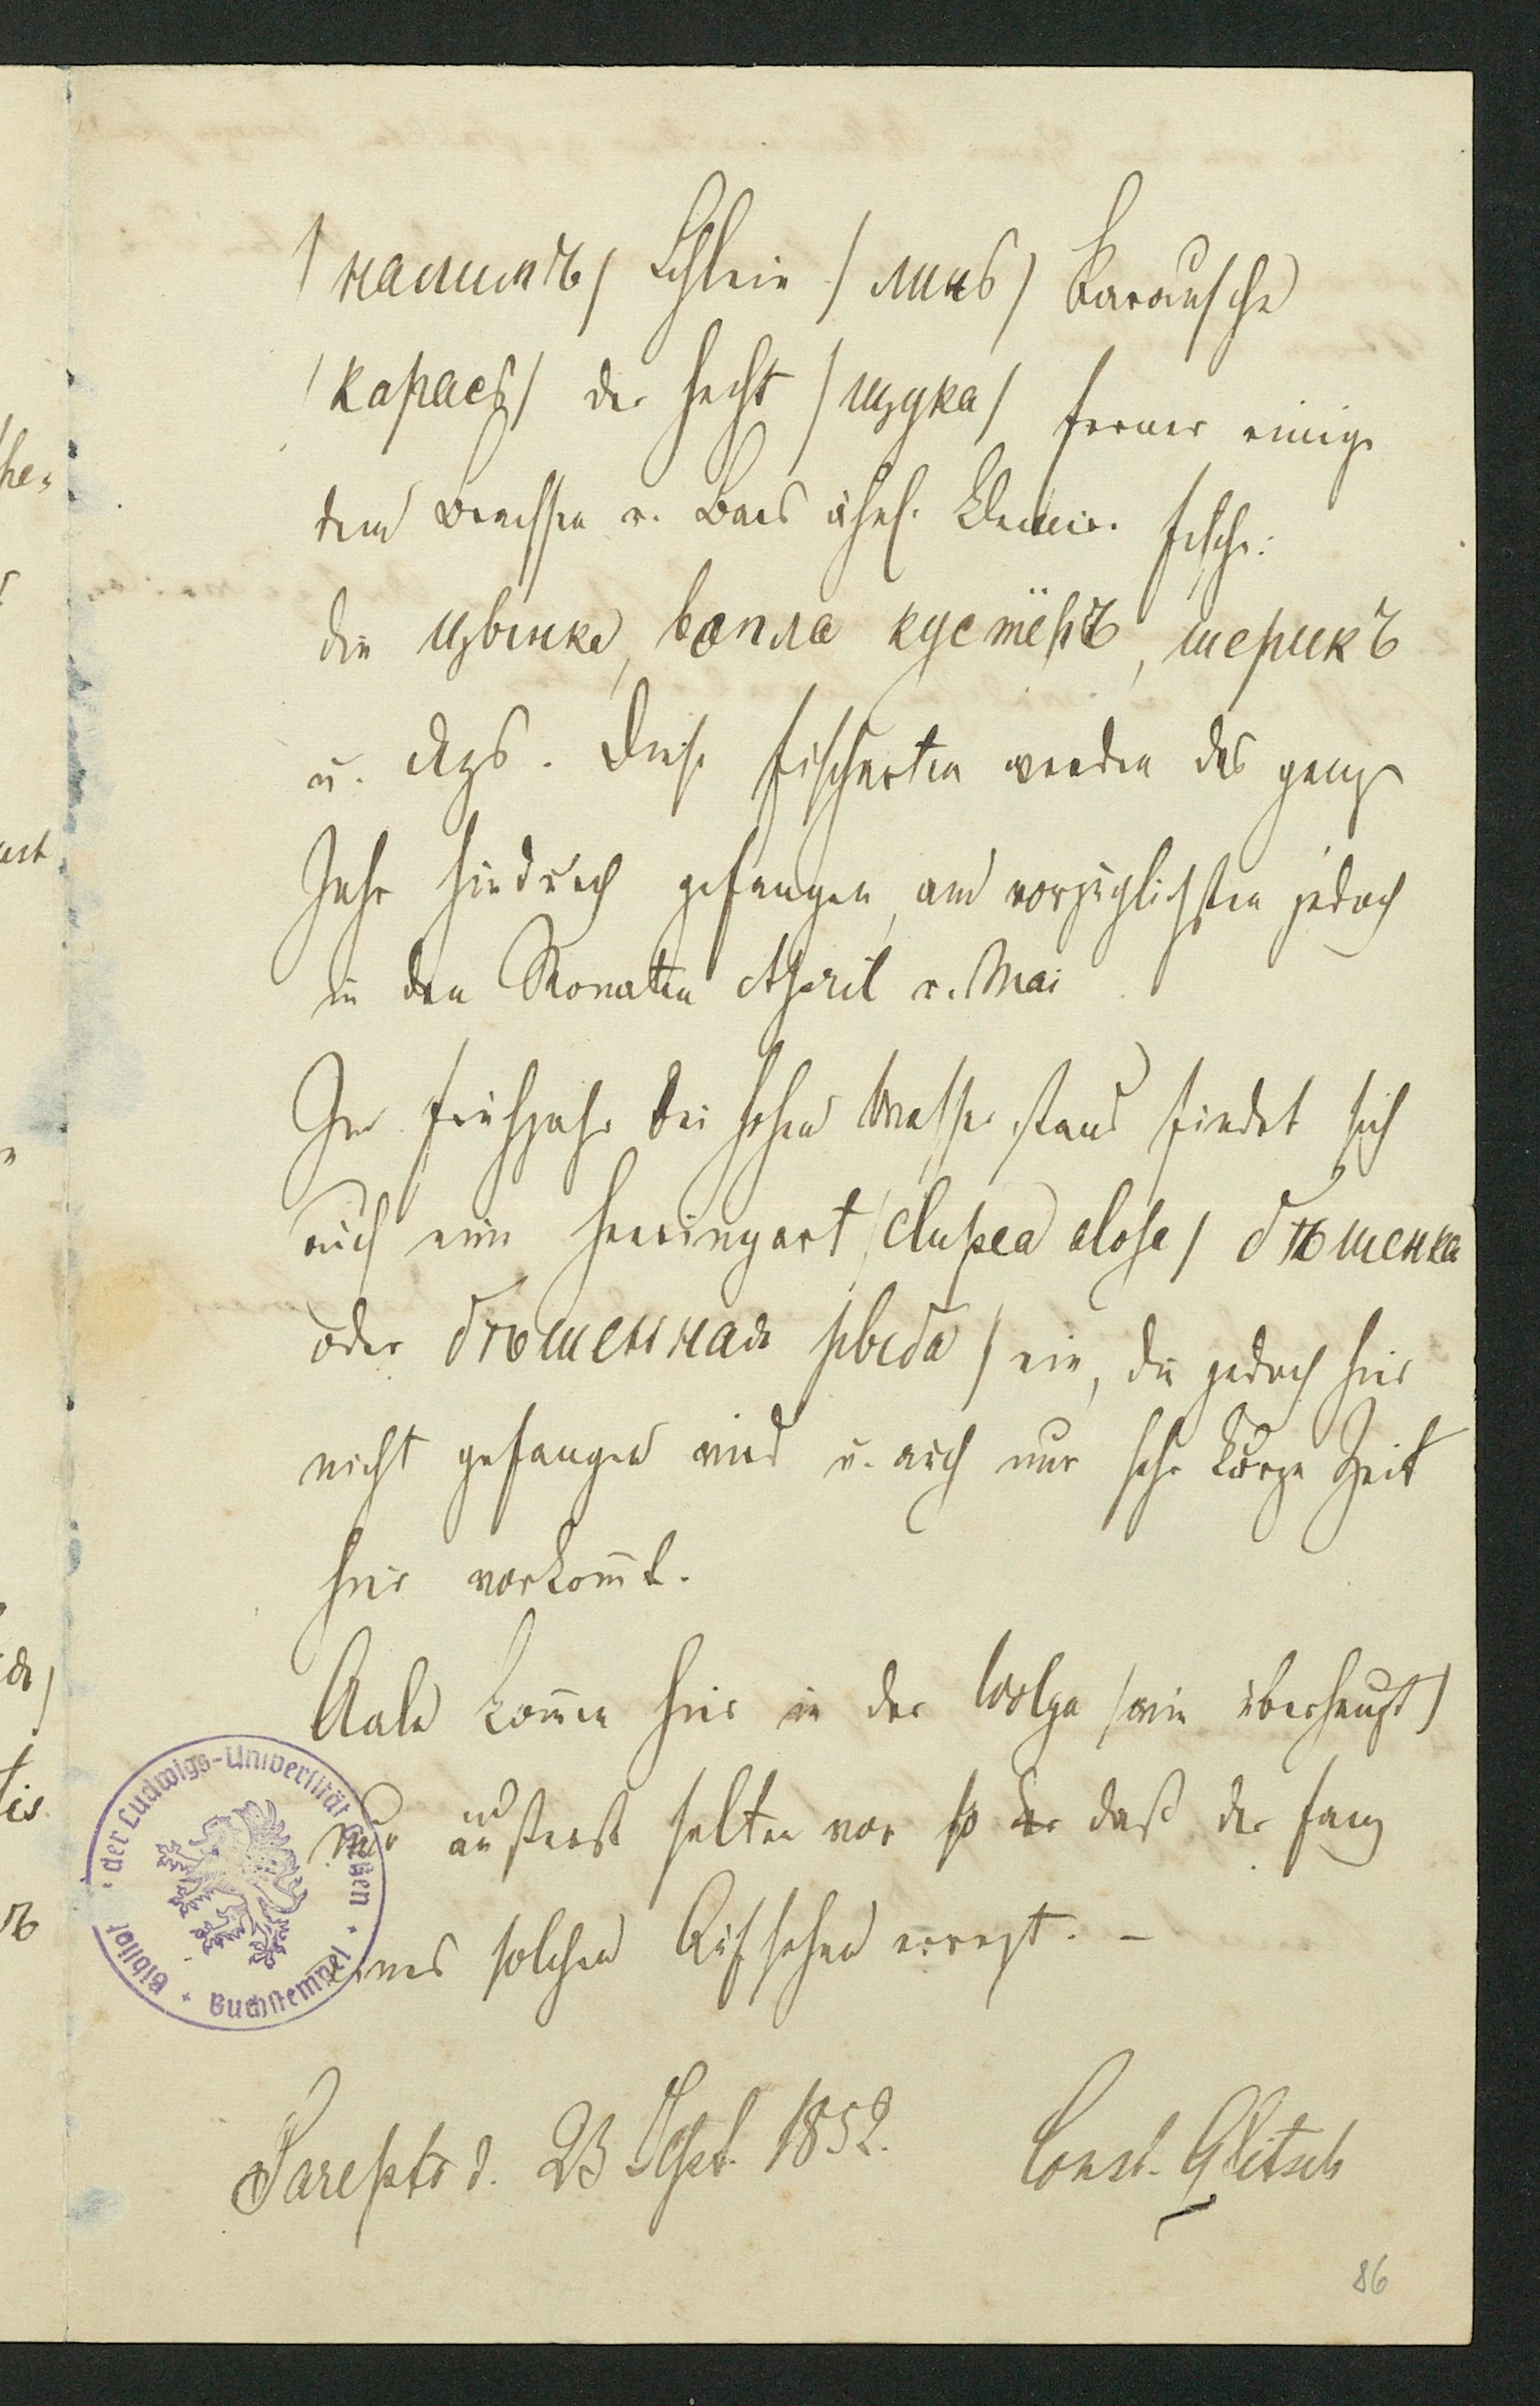 /налимъ/ Schlein /линь/ Karausche
/карась/ der Hecht /щука/ ferner einige
dem Brachsen u. Bars ähnl. kleine. Fische:
die вопла кустёръ, шерикъ
u. язь. Diese Fischarten werden das ganze
Jahr hindurch gefangen, am vorzüglichsten jedoch
in den Monaten April u. Mai
Im Frühjahr bei hohem Wasserstand findet sich
auch eine Heeringart /Clupea alosa/ бѣшенка
oder бѣшенная рыба/ ein, die jedoch hier
nicht gefangen wird u. auch nur sehr kurze Zeit
hier vorkom̅t.
Aale kom̅en hier in der Wolga /wie überhaupt/
nur äusserst selten vor so daß der Fang
eines solchen Aufsehen erregt. –
Sarepta d. 23 Sept. 1852. Const. Glitsch
86
der Ludwigs-Universität Gießen * Buchstempel * Bibliot
he=
ast
tis